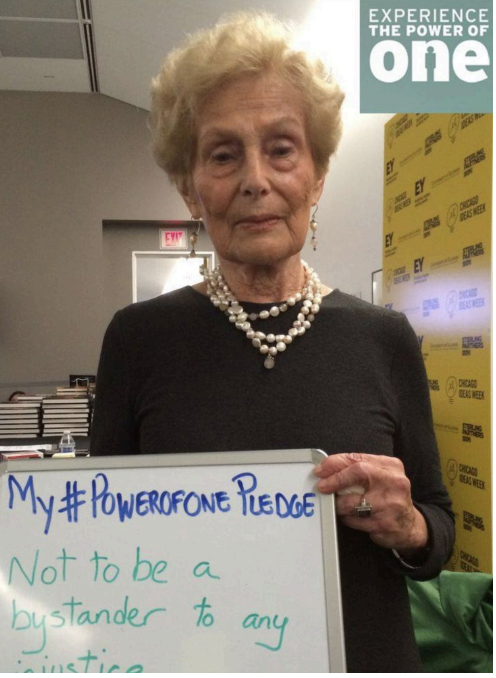 EXPERIENCE
THE POWER OF
one
EXIT
EY
CHICAGO
IDEAS WEEK
STERLING
PARTNERS
My #POWEROFONE PLEDGE
Not to be a
bystander to any
injustice